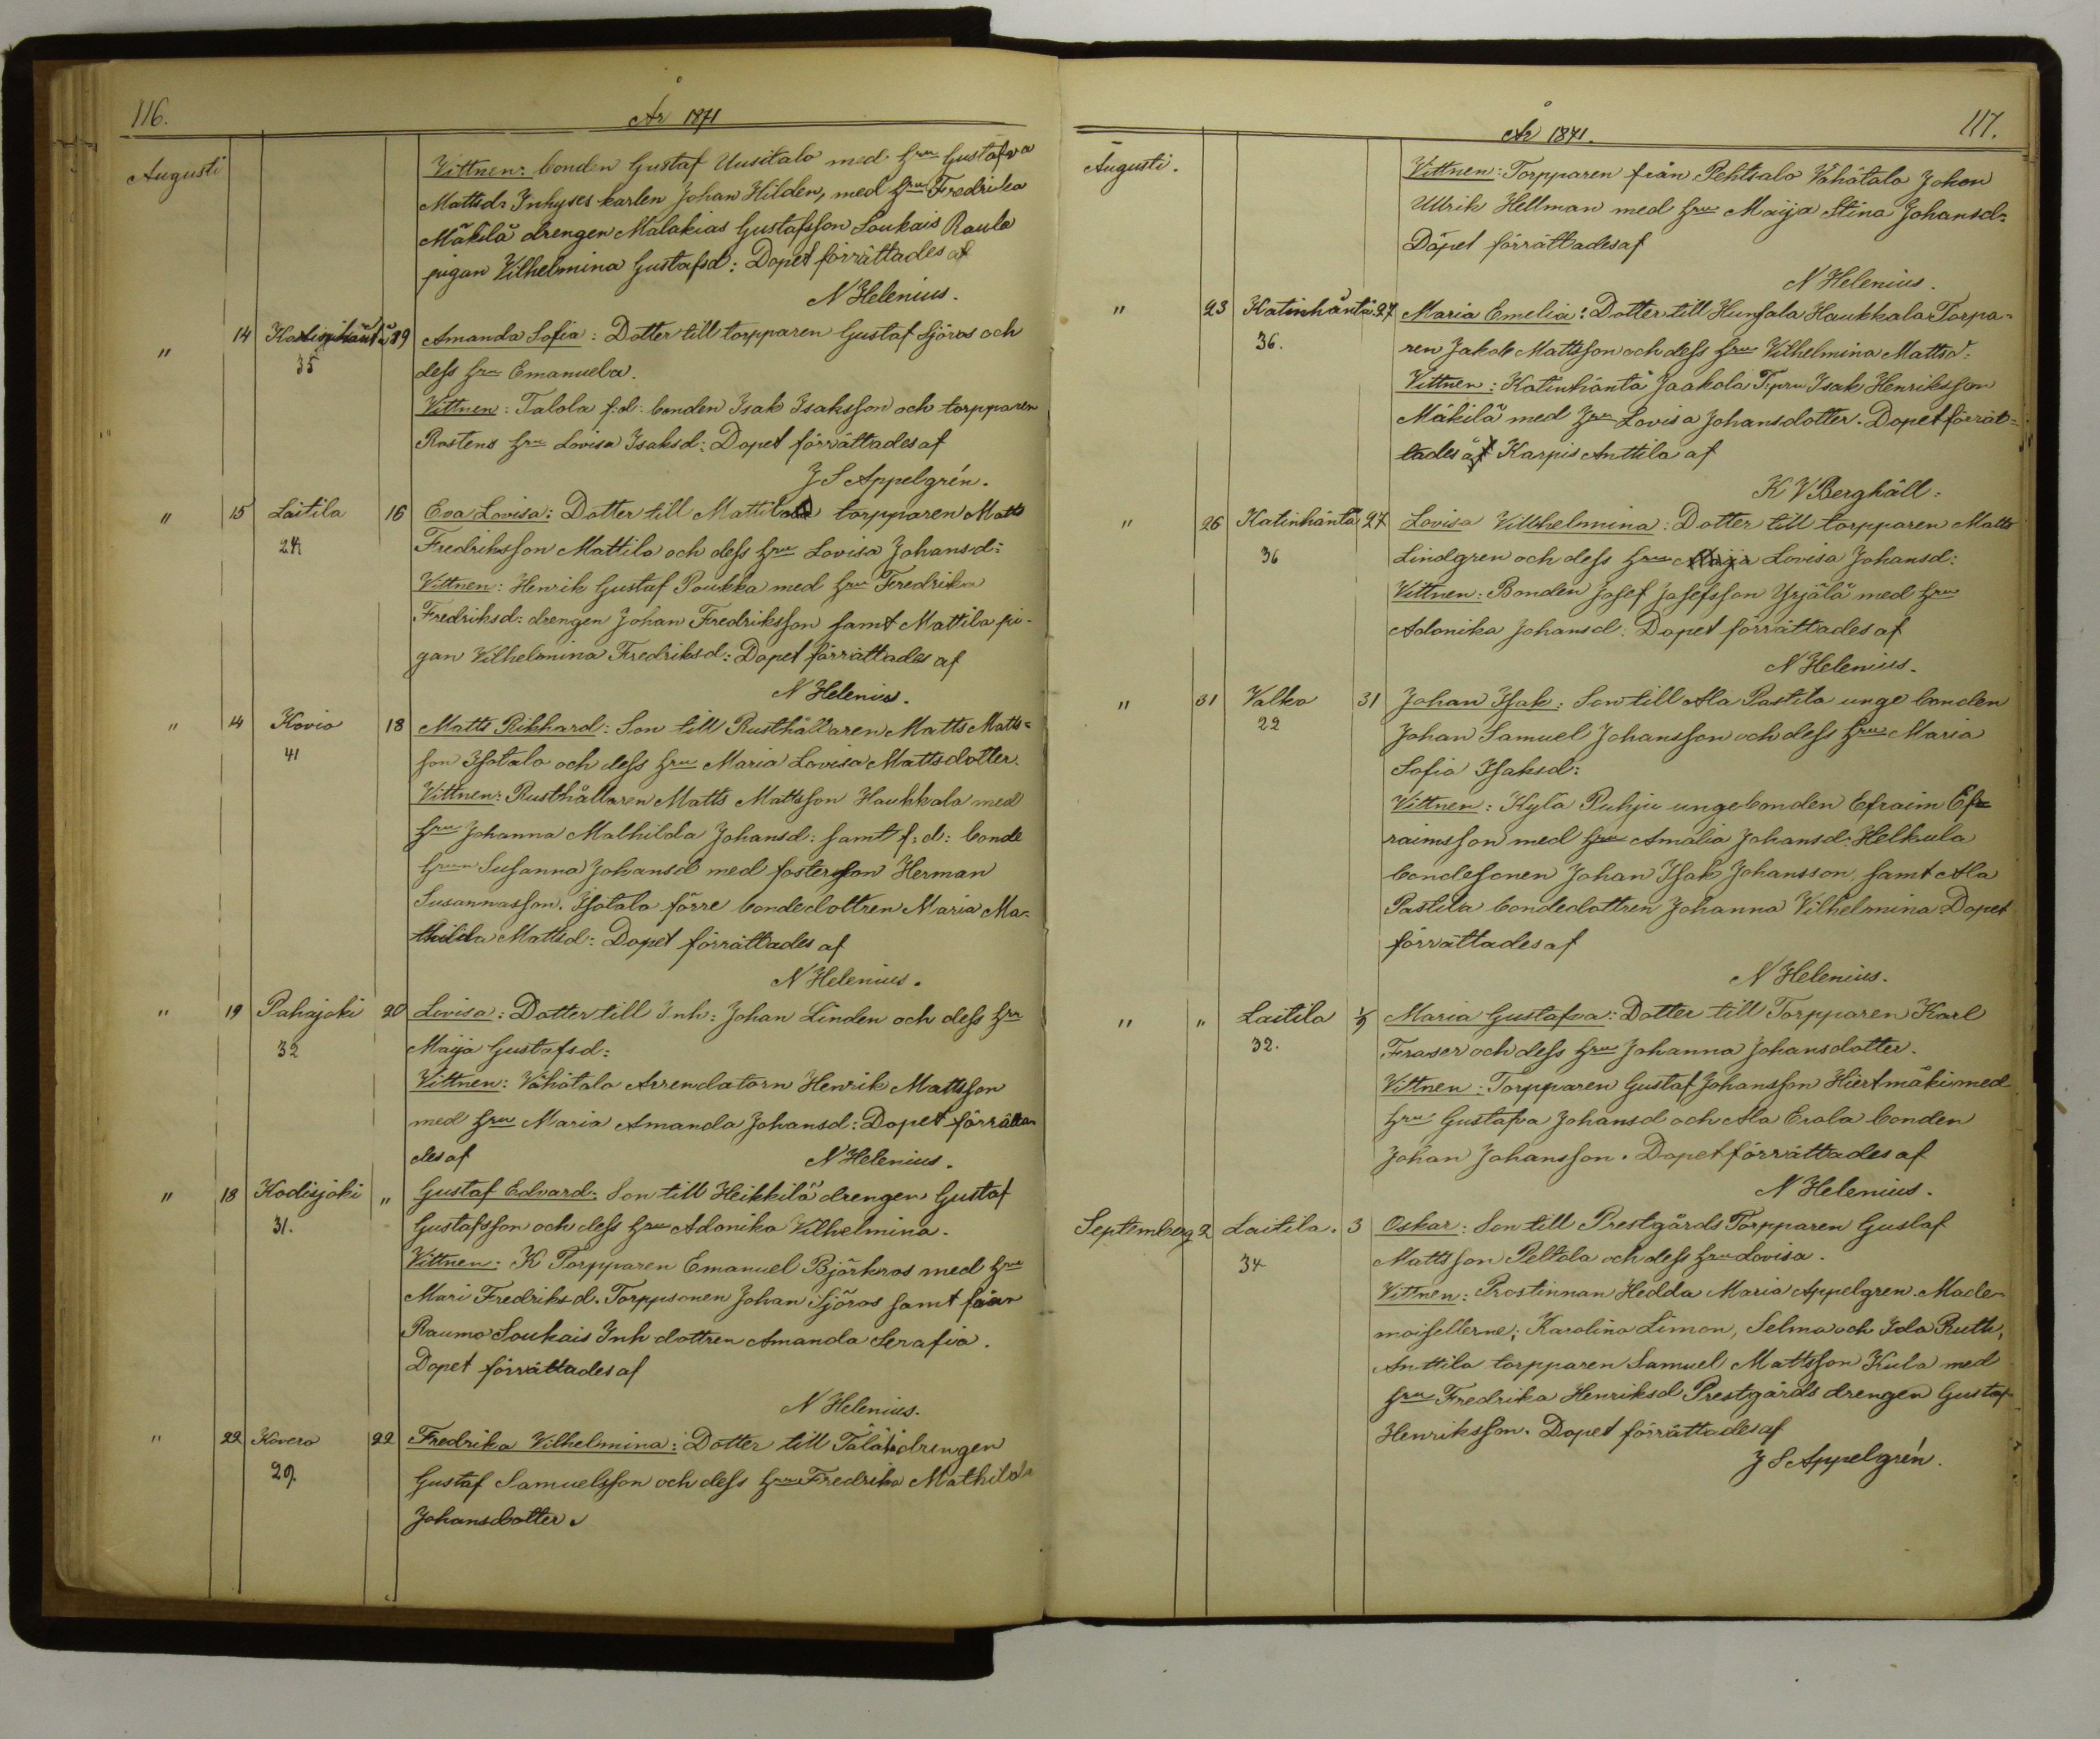 116.
År 1871
Augusti
Vittnen: bonden Gustaf Uusitalo med Hru Gustafva
Mattsd: Inhyses karlen Johan Hilden, med Hru Fredrika
Mäkilä drengen Malakias Gustafsson Soukais Raula
pigan Vilhelmina Gustafsd: Dopet förrättades af
N Helenius.
" 14 39 Amanda Sofia: Dotter till torpparen Gustaf Sjöros och
35 dess Hru Emanuela.
Vittnen: Talola f:d: bonden Isak Isaksson och torpparen
Rostens Hru Lovisa Isaksd: Dopet förrättades af
J S Appelgrén.
" 15 Laitila 16 Eva Lovisa: Dotter till Mattila torpparen Matts
24 Fredriksson Mattila och dess Hru Lovisa Johansd:
Vittnen: Henrik Gustaf Poukka med Hru Feredrika
Fredriksd: drengen Johan Fredriksson samt Mattila pi-
gan Vilhelmina Fredriksd: Dopet förrättades af
N Helenius.
" 14 Kovio 18 Matts Rikhard: Son till Rusthållaren Matts Matts=
41 son Isotalo och dess Hru Maria Lovisa Mattsdotter.
Vittnen: Rusthållaren Matts Mattsson Haukkala med
Hru Johanna Malhilda Johansd: samt f:d: bonde
Hrun Susanna Johansd med fosterson Herman
Susannasson. Isotalo förre bondedottren Maria Ma-
thilda Mattsd: Dopet förrättades af
N Helenius.
" 19 Pahojoki 20 Lovisa: Dotter till Inh: Johan Linden och dess Hru
32 Maija Gustafsd:
Vittnen: Vähätalo Arrendatorn Henrik Mattsson
med Hru Maria Amanda Johansd: Dopet förrätta
des af N Helenius.
" 18 Kodisjoki " Gustaf Edvard: Son till Heikkilä drengen Gustaf
31. Gustafsson och dess Hru Adonika Vilhelmina.
Vittnen: K Torpparen Emanuel Björkros med Hru
Mari Fredriksd. Torppsonen Johan Sjöros samt från
Raumo Soukais Inh dottren Amanda Serafia.
Dopet förrättades af
N Helenius.
" 22 Kovero 22 Fredrika Vilhelmina: Dotter till Tälät drengen
29. Gustaf Samuelsson och dess Hru Fredrika Mathilda
Johansdotter.
År 1871.
117.
Augusti.
Vittnen: Torpparen från Pehtsalo Vähätalo Johan
Ullrik Hellman med Hru Maija Stina Johansd:
Döpet förrättades af
N Helenius.
" 23 Katinhäntä 27 Maria Emelia: Dotter till Hunsala Haukkala Torpa-
36. ren Jakob Mattsson och dess Hru Vilhelmina Mattsd:
Vittnen: Katinhäntä Jaakola T:pru Isak Henriksson
Mäkilä med Hru Lovisa Johansdotter. Dopet förrät=
tades Karpis Anttila af
K V Berghäll:
" 26 Katinhäntä 27 Lovisa Villhelmina: Dotter till torpparen Matts
36 Lindgren och dess Hru Maija Lovisa Johansd:
Vittnen: Bonden Josef Josefsson Yrjälä med Hru
Adonika Johansd: Dopet förrättades af
N Helenius.
" 31 Valko 31 Johan Isak: Son till Ala Pastila unge bonden
22 Johan Samuel Johansson och dess Hru Maria
Sofia Isaksd:
Vittnen: Kylä Puhju unge bonden Efraim Ef-
raimsson med Hru Amalia Johansd: Helkula
bondesonen Johan Isak Johansson, samt Ala
Pastila bondedottren Johanna Vilhelmina Dopet
förrättades af
N Helenius.
" " Laitila 1/9 Maria Gustafva: Dotter till Torpparen Karl
32. Fraser och dess Hru Johanna Johansdotter.
Vittnen: Torpparen Gustaf Johansson Hiertmäki med
Hru Gustafva Johansd och Ala Erola bonden
Johan Johansson. Dopet förrättades af
N Helenius.
September 2 Laitila. 3 Oskar: Son till Prestgårds Torpparen Gustaf
34 Mattsson Peltola och dess Hru Lovisa.
Vittnen: Prostinnan Hedda Maria Appelgren. Made-
moisellerne; Karolina Limon, Selma och Ida Ruth,
Anttila torpparen Samuel Mattsson Kula med
Hru Fredrika Henriksd Prestgårds drengen Gustaf
Henriksson. Dopet förrättades af
J S Appelgrén.